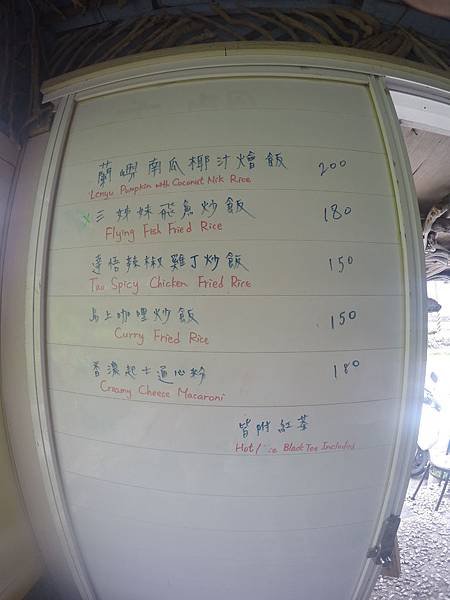 蘭嶼南瓜椰汁燴飯 200
Lanyu Pumpkin with Coconut Milk Rice
x三姊妹飛魚炒飯 180
Flying Fish Fried Rice
達悟辣椒雞丁炒飯 150
Tau Spicy Chicken Fried Rice
島上咖哩炒飯 150
Curry Fried Rice
香濃起士通心粉 180
Creamy Cheese Macaroni
皆附紅茶
Hot/ Ice Black Tea Included